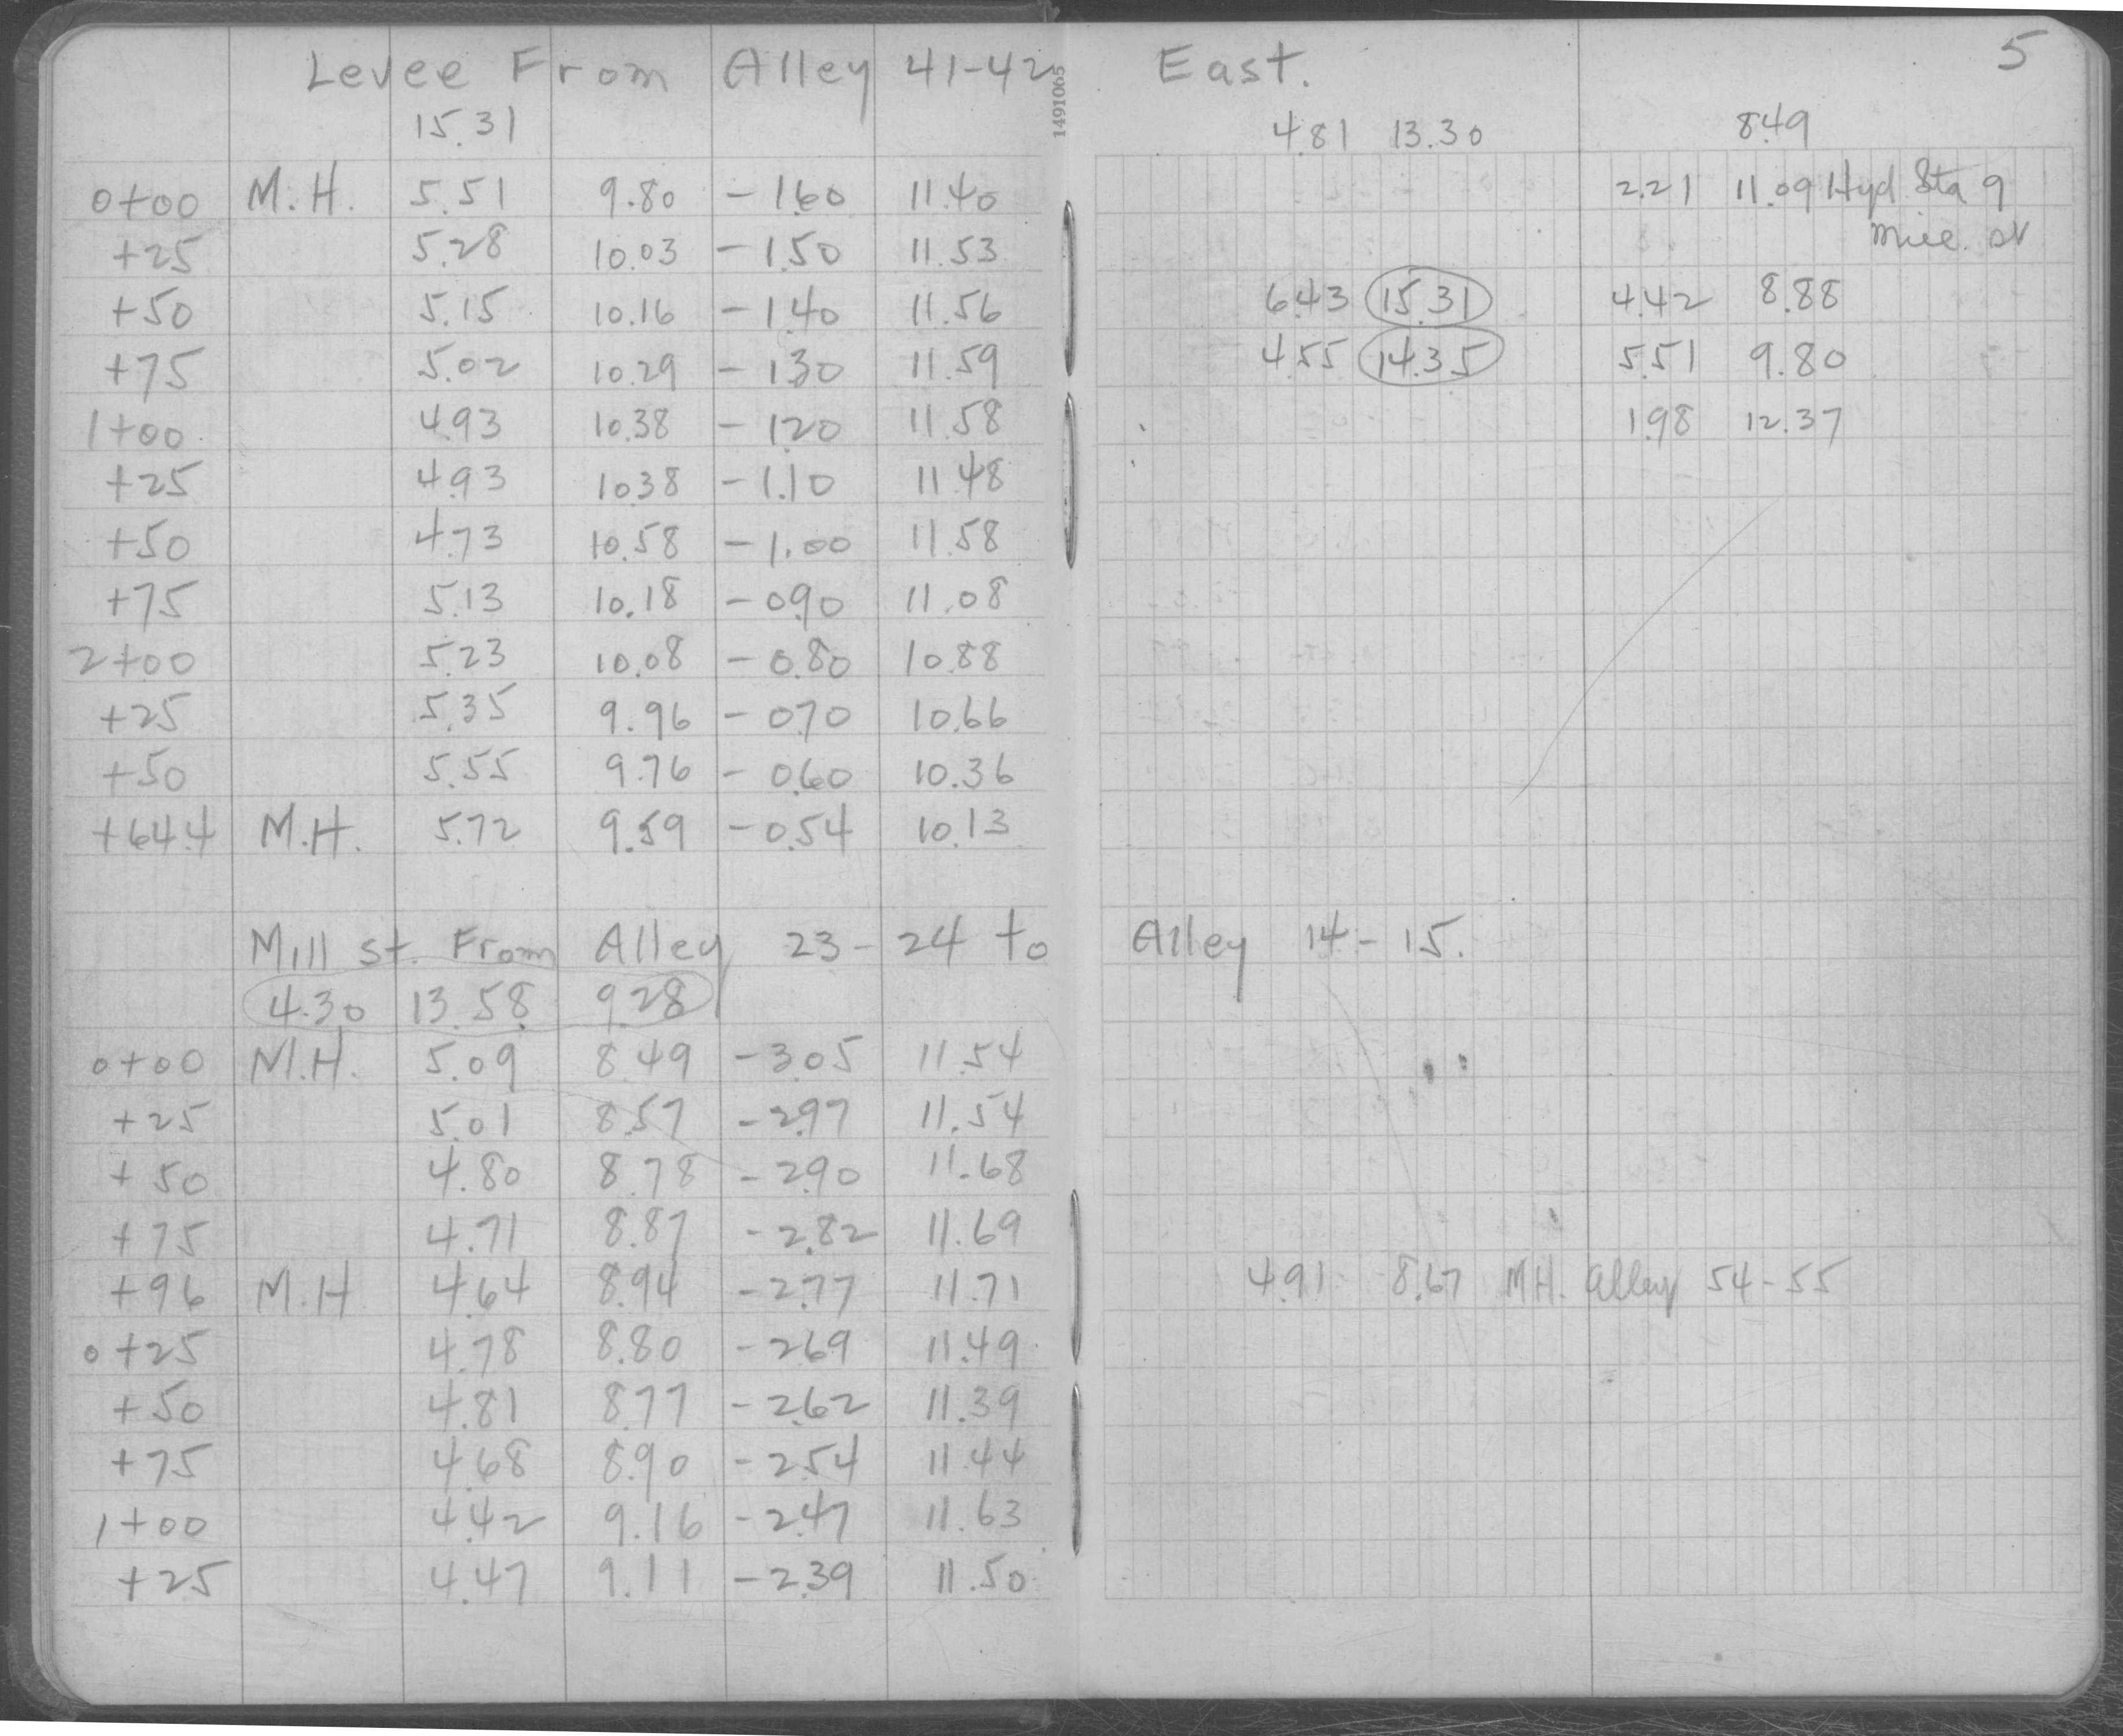 5
Levee From Alley 41-42 East.
15.31 4.81 13.30 8.49
0+00 M.H. 5.51 9.80 -1.60 11.40 2.21 11.09 Hyd. Sta 9
+25 5.28 10.03 -1.50 11.53
+50 5.15 10.16 -1.40 11.56 6.43 15.31 4.42 8.88
+75 5.02 10.29 -1.30 11.59 4.55 14.35 5.51 9.80
1+00 4.93 10.38 -1.20 11.58 1.98 12.37
+25 4.93 10.38 -1.10 11.48
+50 4.73 10.58 -1.00 11.58
+75 5.13 10.18 -0.90 11.08
2+00 5.23 10.08 -0.80 10.88
+25 5.35 9.96 -0.70 10.66
+50 5.55 9.76 -0.60 10.36
+64.4 M.H. 5.72 9.59 -0.54 10.13
Mill st. From Alley 23-24 to Alley 14-15.
4.30 13.58 9.28
0+00 M.H. 5.09 8.49 -3.05 11.54
+25 5.01 8.57 -2.97 11.54
+50 4.80 8.78 -2.90 11.68
+75 4.71 8.87 -2.82 11.69
+96 M.H 4.64 8.94 -2.77 11.71 4.91 8.67 M.H. Alley 54-55
0+25 4.78 8.80 -2.69 11.49
+50 4.81 8.77 -2.62 11.39
+75 4.68 8.90 -2.54 11.44
1+00 4.42 9.16 -2.47 11.63
+25 4.47 9.11 -2.39 11.50
1491065